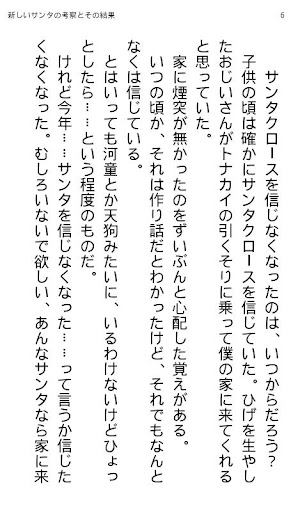 新しいサンタの考察とその結果
6
サンタクロースを信じなくなったのは、いつからだろう?
子供の頃は確かにサンタクロースを信じていた。ひげを生やし
たおじいさんがトナカイの引くそりに乗って僕の家に来てくれる
と思っていた。
家に煙突が無かったのをずいぶんと心配した覚えがある。
いつの頃か、それは作り話だとわかったけど、それでもなんと
なくは信じている。
とはいっても河童とか天狗みたいに、いるわけないけどひょっ
としたら……という程度のものだ。
けれど今年……サンタを信じなくなった……って言うか信じた
くなくなった。むしろいないで欲しい、あんなサンタなら家に来